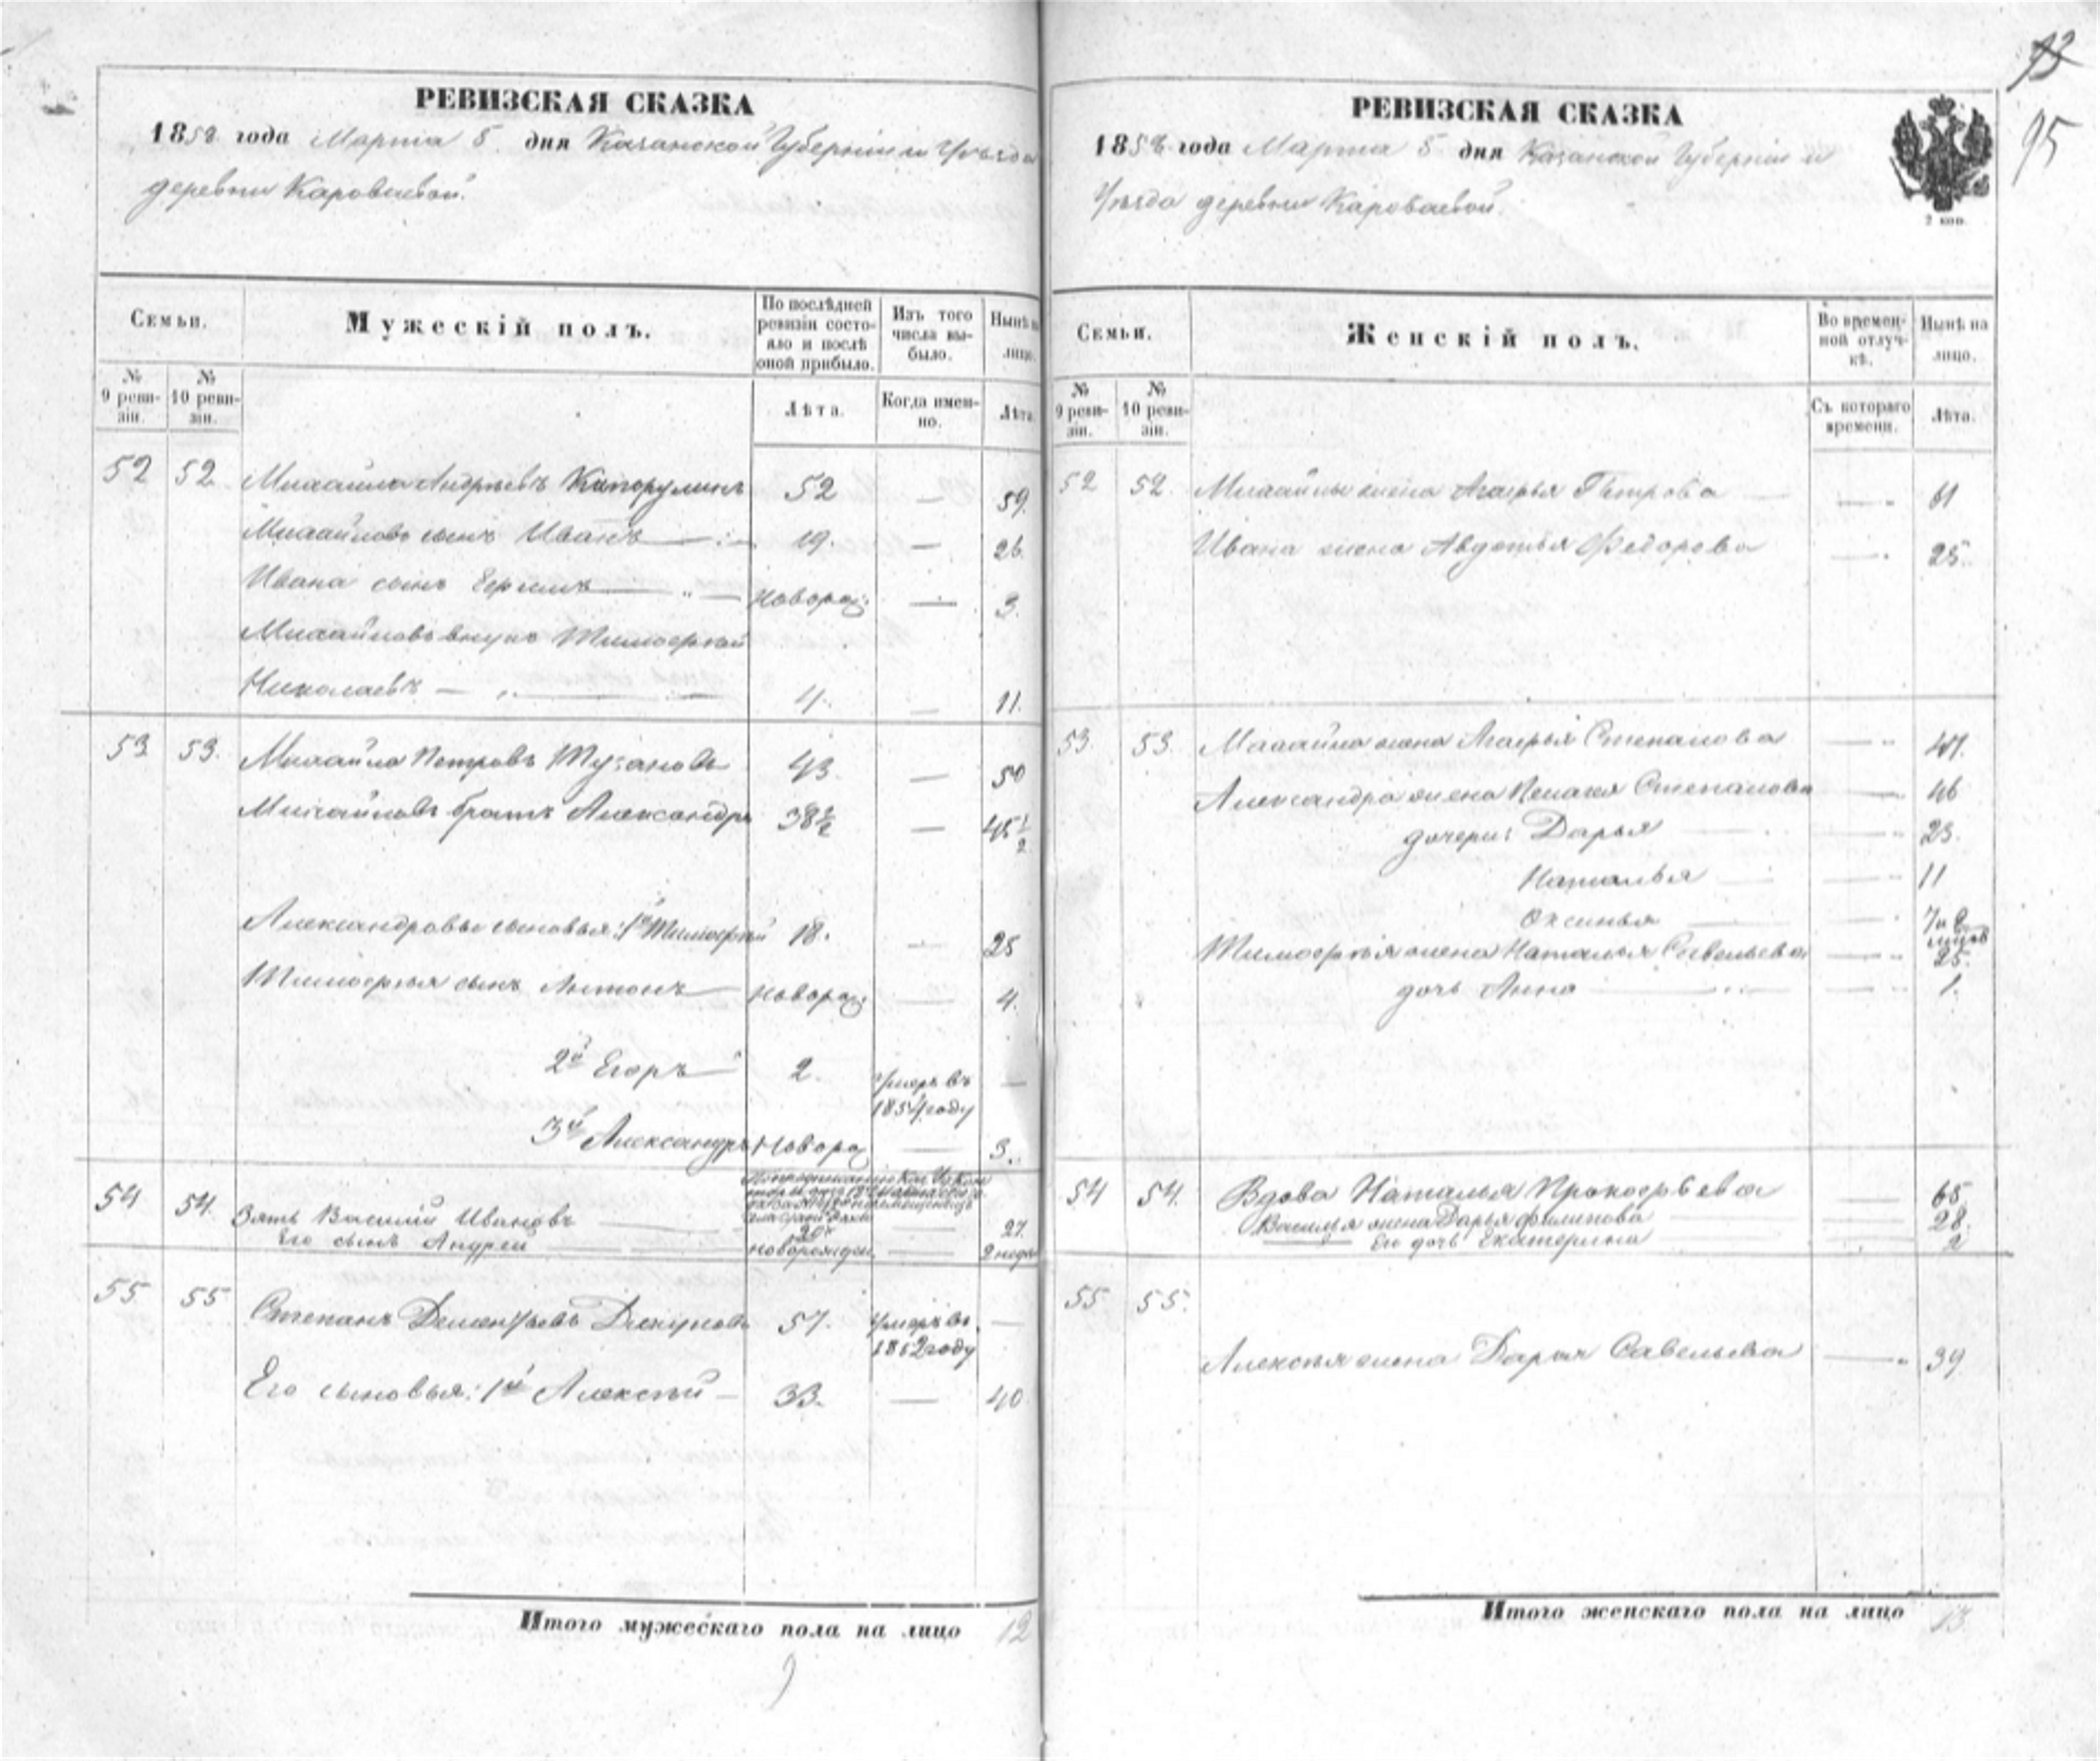 93
95
РЕВИЗСКАЯ СКАЗКА
1858 года Марта 5 дня Казанской Губерніи и Уѣзда
деревни Короваевой.
Семьи.
Мужескій полъ.
По послѣдней ревизіи состояло и послѣ оной прибыло.
Изъ того числа выбыло.
Нынѣ на лицо.
№ 9 ревизіи.
№ 10 ревизіи.
Лѣта.
Когда именно.
Лѣта.
52 52 Михайла Андреевъ 52 — 59.
Михайловъ сынъ Иванъ 19. — 26.
Ивана сынъ новорож: — 3.
Михайловъ внукъ Тимофѣй
Николаевъ — 4. — 11.
53 53. Михайла Петровъ 43. — 50
Михайловъ братъ Александръ 38½ — 45½
Александровы сыновья: 1й Тимофѣй 18. — 25
Тимофѣя сынъ Антонъ новорож: — 4.
2й Егоръ 2. умеръ въ —
1854 году
3й Александръ новорож — 3.
54 54. Зять Василій Ивановъ 20. — 27.
Его сынъ Андрей новорожден — 2 недѣ
55 55 Степанъ Дементьевъ 57. умеръ въ —
1852 году
Его сыновья: 1й Алексѣй — 33. — 40
Итого мужескаго пола на лицо 12
РЕВИЗСКАЯ СКАЗКА
1858 года Марта 5 дня Казанской Губерніи и
Уѣзда деревни Короваевой.
2 коп.
Семьи.
Женскій полъ.
Во временной отлучкѣ.
Нынѣ на лицо.
№ 9 ревизіи.
№ 10 ревизіи.
Съ котораго времени.
Лѣта.
52 52. Михайлы жена Агафья Петрова — 61
Ивана жена Авдотья Федорова — 25.
53. 53. Михайла жена Агафья Степанова — 47.
Александра жена Пелагея Степанова — 46
дочери: Дарья — 23.
Наталья — 11
Оксинья —
Тимофѣя жена Наталья Савельева — 25.
дочь Анна — 1.
54 54. Вдова Наталья Прокофьева — 65
Василья жена Дарья Филипова — 28.
Его дочь Екатерина — 2
55 55.
Алексѣя жена Дарья Савельева — 39
Итого женскаго пола на лицо 13